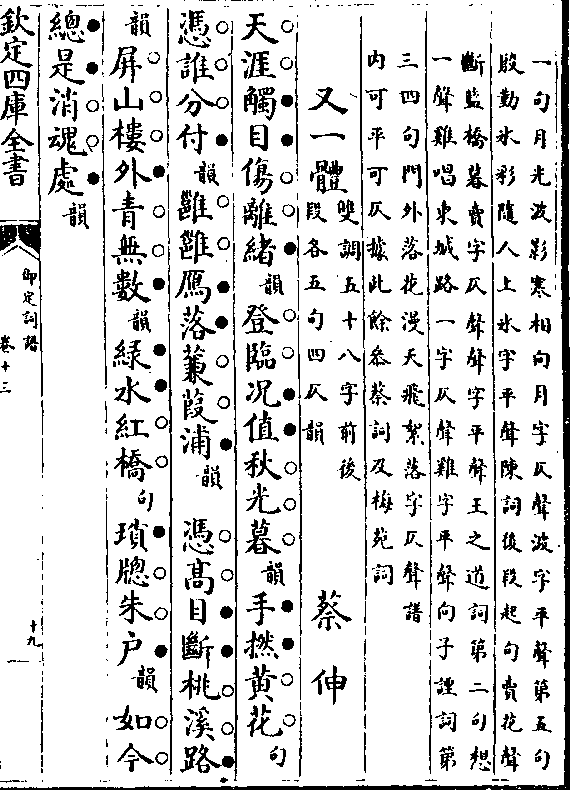 一句月光波影寒相向月字仄聲波字平聲第五句
殷勤氷彩隨人上氷字平聲陳詞後段起句賣花聲
斷藍橋暮賣字仄聲聲字平聲王之道詞第二句想
一聲雞唱東城路一字仄聲雞字平聲向子諲詞第
三四句門外落花漫天飛絮落字仄聲譜
内可平可仄據此餘叅蔡詞及梅苑詞
又一體 雙調五十八字前後
段各五句四仄韻 蔡伸
天涯觸目傷離緒韻登臨况值秋光暮韻手撚黄花句
憑誰分付韻雝雝鴈落蒹葭浦韻 憑髙目斷桃溪路
韻屏山樓外青無數韻緑水紅橋句瑣牕朱户韻如今
總是消魂處韻
欽定四庫全書
御定詞譜
卷十三
十九